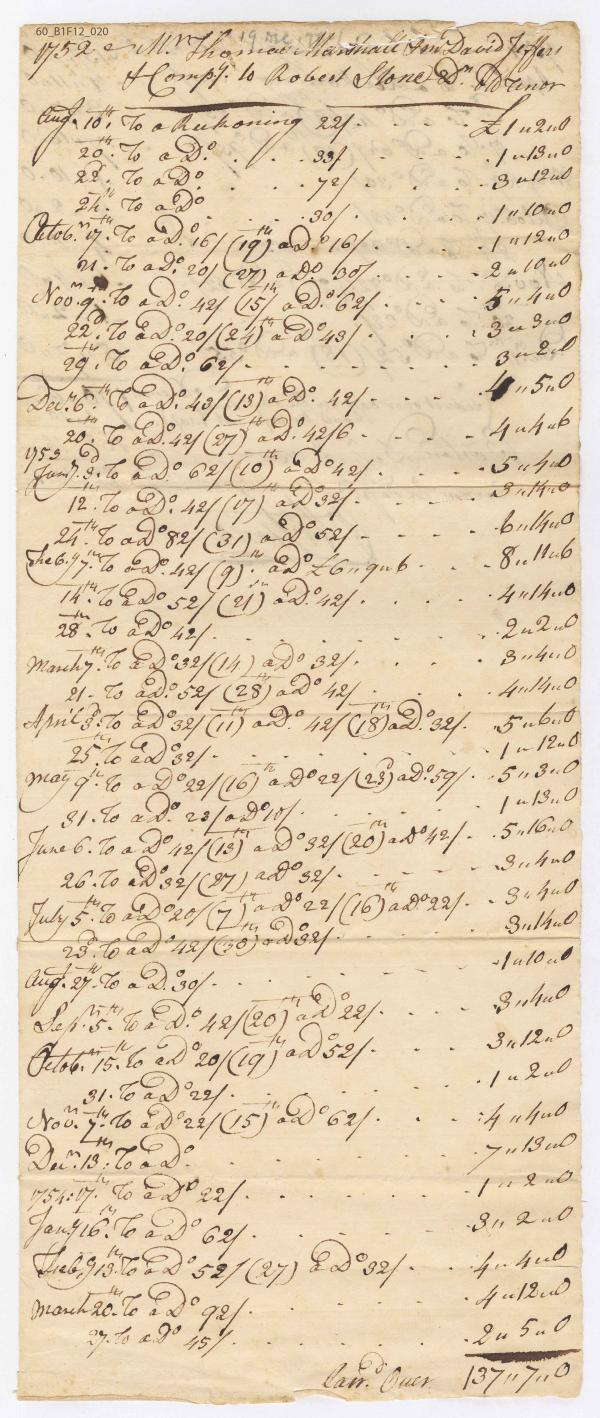 60_B1F12_020
1752 Mr. Thomas Marshall Jun David Jeffers
& Compy. to Robert Stone Dr. Old Tenor
Augt. 10th. To a Reckoning 22/ . . . . £1"2"0
20th. To a Do. . . . 33/ . . . . 1"13"0
22d. To a Do. . . . 72/ . . . . 3"12"0
24th. To a Do . . . 30/ . . . . 1"10"0
Octobr. 17th. To a Do. 16/ (19)th a Do 16/ . . . . 1"12"0
21. To a Do. 20/ (27)th a Do. 30/ . . . . 2"10"0
Novr. 9th. To a Do. 42/ (15)th a Do. 62/ . . . . 5"4"0
22d. To a Do. 20/ (24)th a Do 43/ . . . . 3"3"0
29th. To a Do. 62/ . . . . 3"2"0
Decr. 6th. To a Do. 43/ (13)th a Do. 42/ . . . . 4"5"0
20th. To a Do. 42/ (27)th a Do. 42/6 . . . . 4"4"6
1753
Jany. 3d. To a Do 62/ (10)th a Do 42/ . . . . 5"4"0
12th. To a Do. 42/ (17)th a Do 32/ . . . . 3"14"0
24th. To a Do 82/ (31) a Do 52/ . . . . 6"14"0
Feby. 7th. To a Do. 42/ (9)th. a Do £6"9"6 . . . 8"11"6
14th. To a Do 52/ (21)th a Do. 42/ . . . . 4"14"0
28th. To a Do 42/ . . . . 2"2"0
March 7th. To a Do 32/ (14)th a Do 32/ . . . . 3"4"0
21. To a Do. 52/ (28)th a Do 42/ . . . . 4"14"0
April 3d. To a Do 32/ (11)th a Do. 42/ (18)th a Do. 32/ . 5"6"0
25th. To a Do 32/ . . . . 1"12"0
May 9th. To a Do 22/ (16)th a Do 22/ (23)d a Do. 59/ . 5"3"0
31. To a Do. 23/ a Do 10/ . . . . 1"13"0
June 6. To a Do 42/ (13)th a Do 32/ (20)th a Do 42/ . 5"16"0
26. To a Do 32/ (27) a Do 32/ . . . . 3"4"0
July 5th. To a Do 20/ (7)th a Do 22/ (16)th a Do. 22/ . 3"4"0
23d. To a Do 42/ (30)th a Do 32/ . . . . 3"14"0
Augt. 27th. To a Do. 30/ . . . . 1"10"0
Sepr. 5th. To a Do. 42/ (20)th a Do 22/ . . . . 3"4"0
Octobr. 15th. To a Do 20/ (19)th a Do 52/ . . . . 3"12"0
31. To a Do 22/ . . . . 1"2"0
Novr. 7th. To a Do 22/ (15)th a Do 62/ . . . . 4"4"0
Decr. 13th. To a Do. . . . . 7"13"0
1754. 17th. To a Do 22/ . . . . 1"2"0
Jany 16th. To a Do 62/ . . . . 3"2"0
Feby 13th. To a Do 52/ (27) a Do 32/ . . . . 4"4"0
March 20th. To a Do 92/ . . . . 4"12"0
27. To a Do 45/ . . . . 2"5"0
Carrd. Over 137"7"0